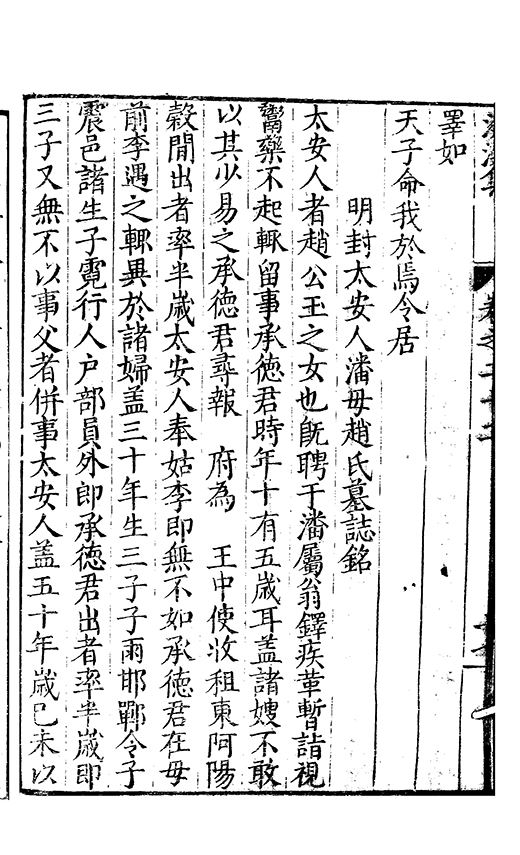 睪如
天子命我於焉令居
明封太安人潘母趙氏墓誌銘
太安人者趙公玉之女也旣聘于潘屬翁鐸疾革暫詣視
鬻藥不起輙留事承德君時年十有五歲耳盖諸嫂不敢
以其少易之承德君尋報　府為　王中使收租東阿陽
穀閒出者率半歲太安人奉姑李即無不如承德君在毋
前李遇之輙異於諸婦盖三十年生三子子雨邯鄲令子
震邑諸生子霓行人户部員外郎承德君出者率半歲即
三子又無不以事父者併事太安人盖五十年歲巳未以